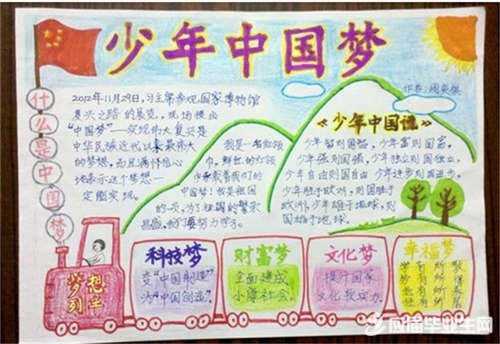 少年中国梦
什么是中国梦
2012年11月29日,习主席参观国家博物馆
复兴之路的展览,现场提出
“中国梦”—实现伟大复兴是
中华民族近代以来最伟大
的梦想,而且满怀信心
地表示这个梦想一
定能实现。
我是一名红领
巾,鲜红的红领
中国梦!我是祖国
的一员,为了祖国的繁荣
昌盛,我们要努力学习。
《少年中国说》
少年智则国智,少年富则国富。
少年强则国强,少年独立则国独立。
少年自由则国自由,少年进步则国进步。
少年胜于欧洲,则国胜于
欧洲,少年雄于地球,则
国雄于地球。
梦想号
列主
科技梦
变“中国制造”
为“中国创造”。
财富梦
全面建成
小康社会。
文化梦
提升国家
文化软实力。
幸福梦